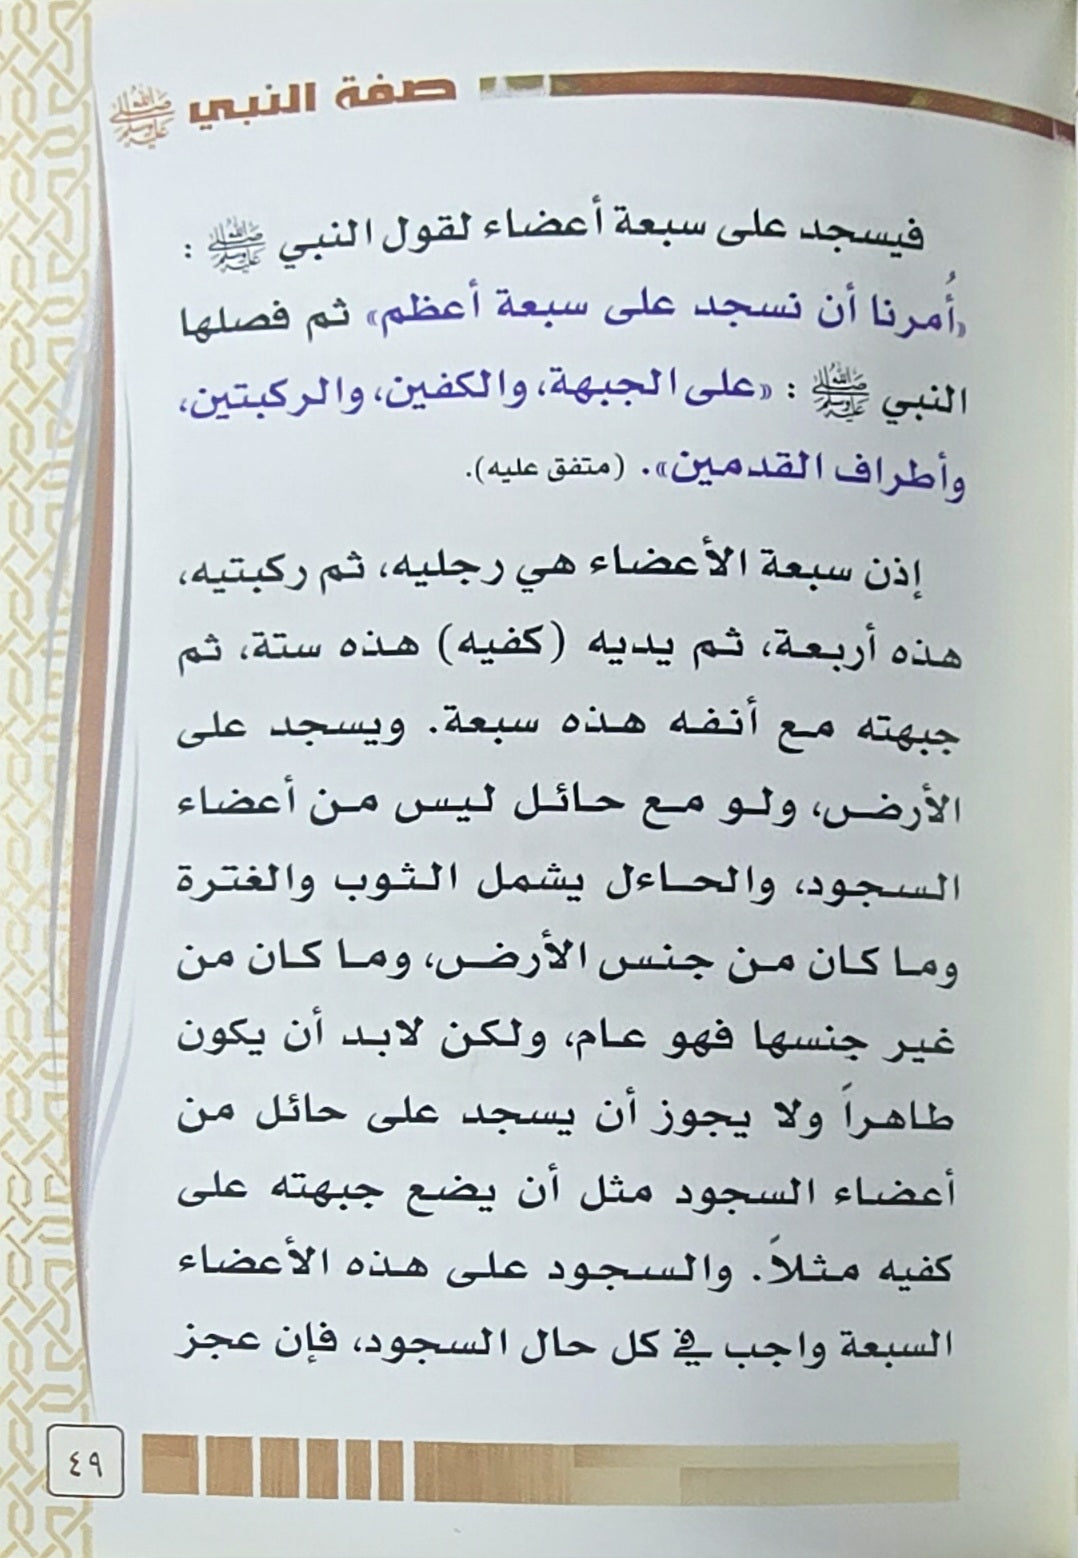 صفة النبي ﷺ
فيسجد على سبعة أعضاء لقول النبي ﷺ :
«أُمرنا أن نسجد على سبعة أعظم» ثم فصلها
النبي ﷺ : «على الجبهة، والكفين، والركبتين،
وأطراف القدمين». (متفق عليه).
إذن سبعة الأعضاء هي رجليه، ثم ركبتيه،
هذه أربعة، ثم يديه (كفيه) هذه ستة، ثم
جبهته مع أنفه هذه سبعة. ويسجد على
الأرض، ولو مع حائل ليس من أعضاء
السجود، والحاءل يشمل الثوب والغترة
وما كان من جنس الأرض، وما كان من
غير جنسها فهو عام، ولكن لابد أن يكون
طاهراً ولا يجوز أن يسجد على حائل من
أعضاء السجود مثل أن يضع جبهته على
كفيه مثلاً. والسجود على هذه الأعضاء
السبعة واجب في كل حال السجود، فإن عجز
٤٩